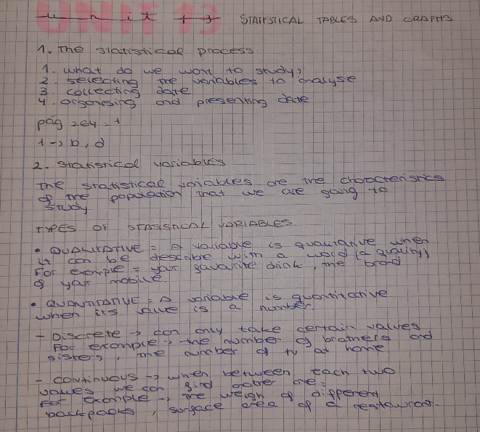 UNIT 13 STATISTICAL TABLES AND GRAPHS
1. The statistical process
1. what do we want to study?
2. selecting the variables to analyse
3. collecting date
4. organising and presenting date
pág 264 - 1
1 → b, d
2. Statistical variables
The statistical variables are the characteristics
of the population that we are going to
study
TYPES OF STATISTICAL VARIABLES
• QUALITATIVE = A variable is qualitative when
it can be describe with a word (a quality)
For example = your favourite drink, the brand
of your mobile.
• QUANTITATIVE = A variable is quantitative
when its value is a number.
- Discrete → can only take certain values
For example → the number of brothers and
sisters, the number of tv at home
- Continuous → when between each two
values we can find other one:
For example → the weigh of different
backpacks, surface area of a restaurant.